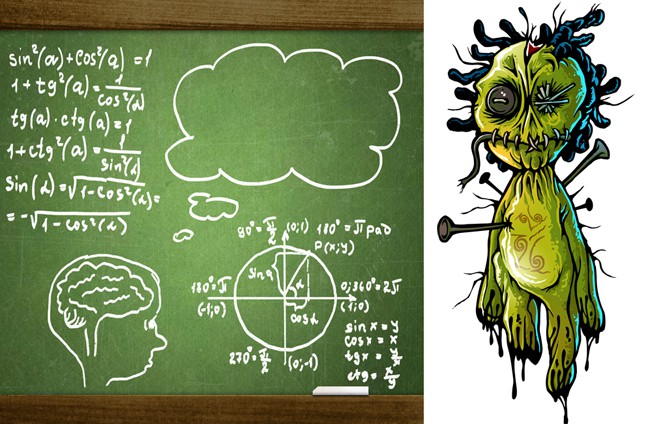 sin²(α)+cos²(α)=1
1+tg²(α)=1/cos²(α)
tg(α)·ctg(α)=1
1+ctg²(α)=1/sin²(α)
sin(α)=√1-cos²(α)=
=-√1-cos²(α)
90°=π/2 (0;1) 180°=π рад
P(x;y)
sin α
α
180°=π 0;360°=2π
(-1;0) (1;0)
cos α
270°=π/2 (0;-1)
sin x=y
cos x=x
tg x=y/x
ctg=x/y